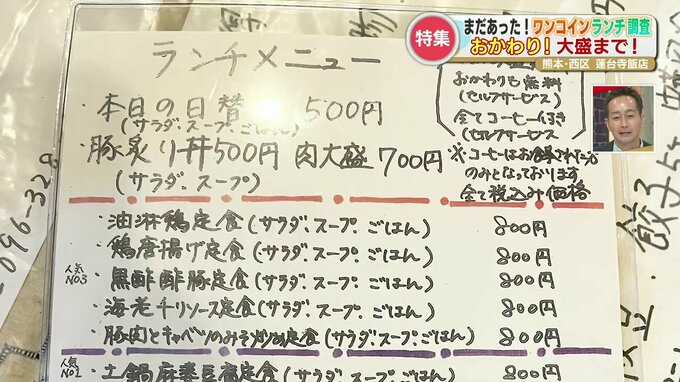 特集
まだあった!ワンコインランチ調査
おかわり!大盛まで!
熊本・西区 蓮台寺飯店
ランチメニュー
おかわりも無料
(セルフサービス)
全てコーヒー付き
(セルフサービス
・本日の日替 500円
(サラダ・スープ・ごはん)
・豚炙り丼500円 肉大盛700円
(サラダ・スープ)
※コーヒーはお食事された方
のみとなっております
全て税込み価格
・油淋鶏定食(サラダ・スープ・ごはん) 800円
・鶏唐揚げ定食(サラダ・スープ・ごはん) 800円
人気No3 ・黒酢酢豚定食(サラダ・スープ・ごはん) 800円
・海老チリソース定食(サラダ・スープ・ごはん) 800円
・豚肉とキャベツのみそ炒め定食(サラダ・スープ・ごはん) 800円
・土鍋麻婆豆腐定食(サラダ・スープ・ごはん)
096-329
餃子